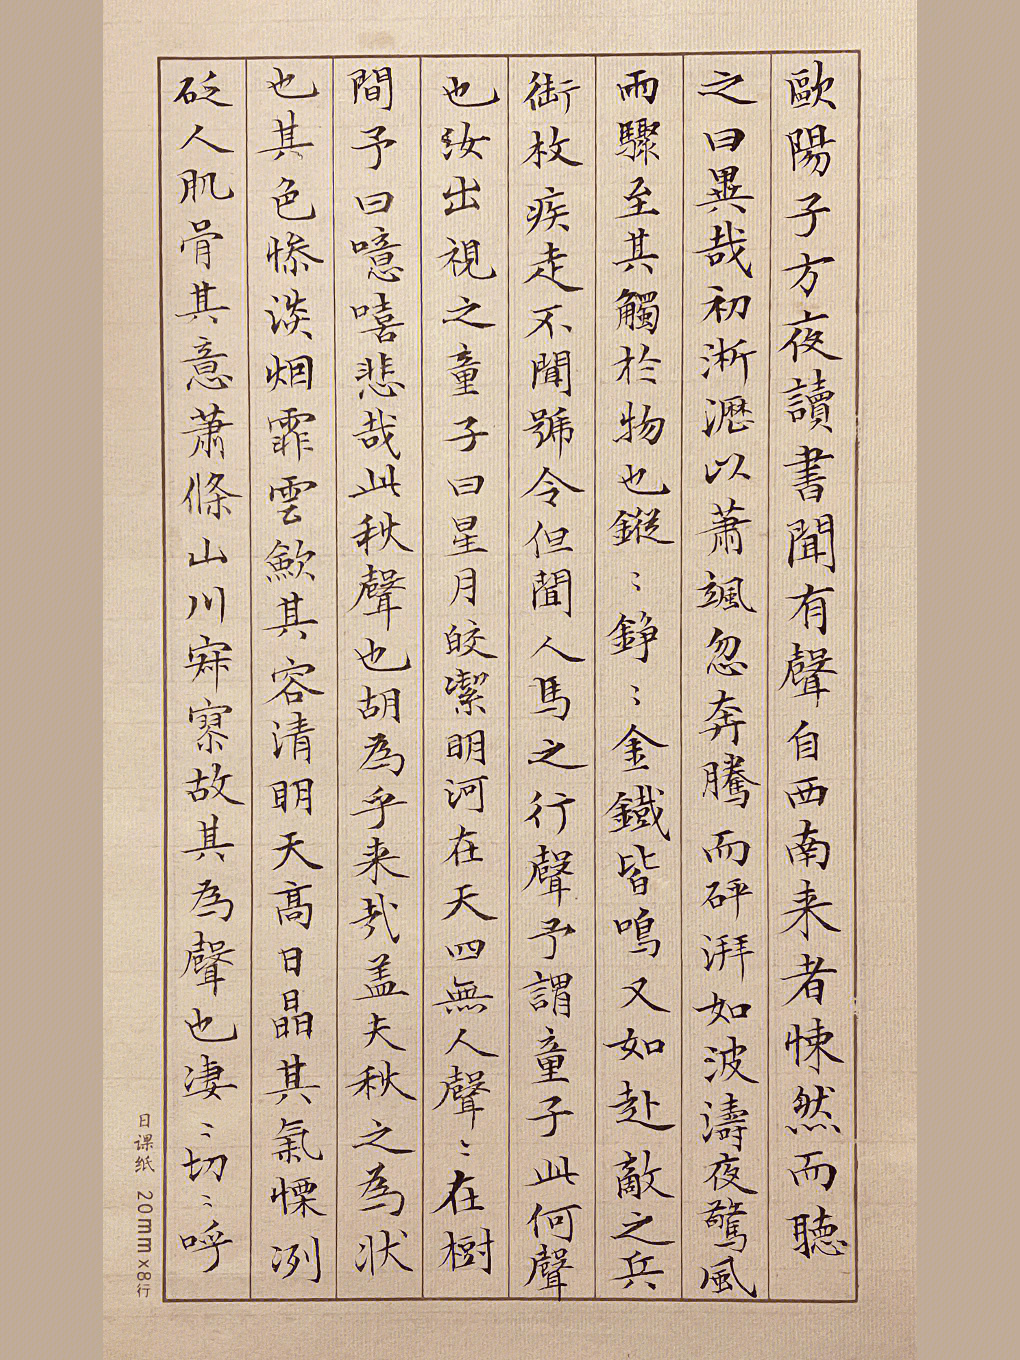 歐陽子方夜讀書聞有聲自西南来者悚然而聽
之曰異哉初淅瀝以蕭颯忽奔騰而砰湃如波濤夜驚風
雨驟至其觸於物也鏦〻錚〻金鐵皆鳴又如赴敵之兵
銜枚疾走不聞號令但聞人馬之行聲予謂童子此何聲
也汝出視之童子曰星月皎潔明河在天四無人聲〻在樹
間予曰噫嘻悲哉此秋聲也胡為乎来哉盖夫秋之為狀
也其色慘淡烟霏雲歛其容清明天高日晶其氣慄冽
砭人肌骨其意蕭條山川寂寥故其為聲也凄〻切〻呼
日课纸 20mm×8行